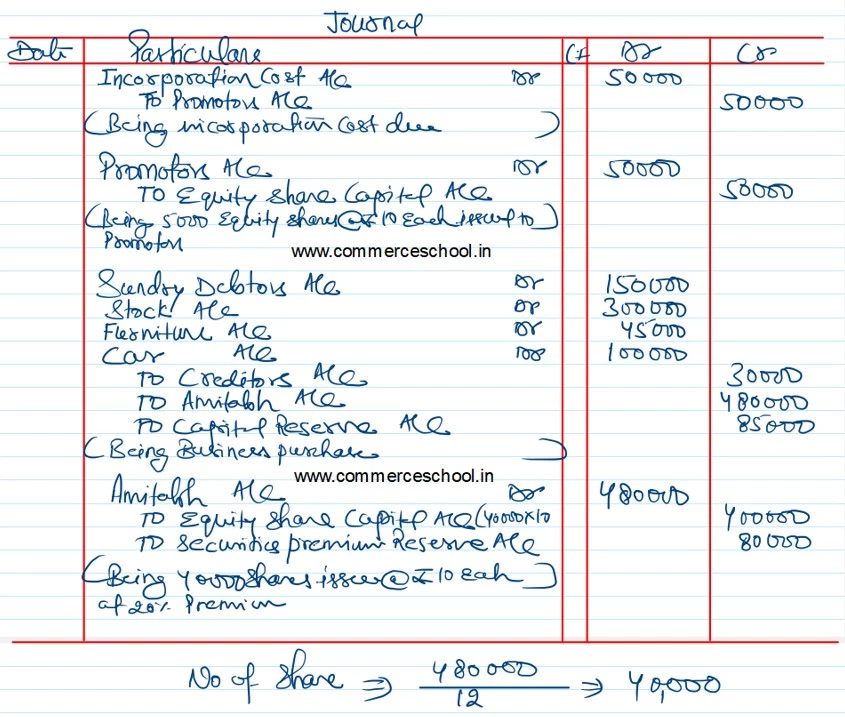 Journal
Date Particulars Lf Dr Cr
Incorporation Cost A/c Dr 50000
To Promotors A/c 50000
(Being incorporation cost due)
Promotors A/c Dr 50000
TO Equity Share Capital A/c 50000
(Being 5000 Equity shares @ ₹10 Each issued to)
Promotors
www.commerceschool.in
Sundry Debtors A/c Dr 150000
Stock A/c Dr 300000
Furniture A/c Dr 45000
Car A/c Dr 100000
TO Creditors A/c 30000
TO Amitabh A/c 480000
TO Capital Reserve A/c 85000
(Being Business purchase)
www.commerceschool.in
Amitabh A/c Dr 480000
TO Equity Share Capital A/c (40000×10 400000
TO Securities premium Reserve A/c 80000
(Being 40000 shares issue @ ₹10 Each)
at 20% Premium
No of Share ⇒ 480000 / 12 ⇒ 40,000